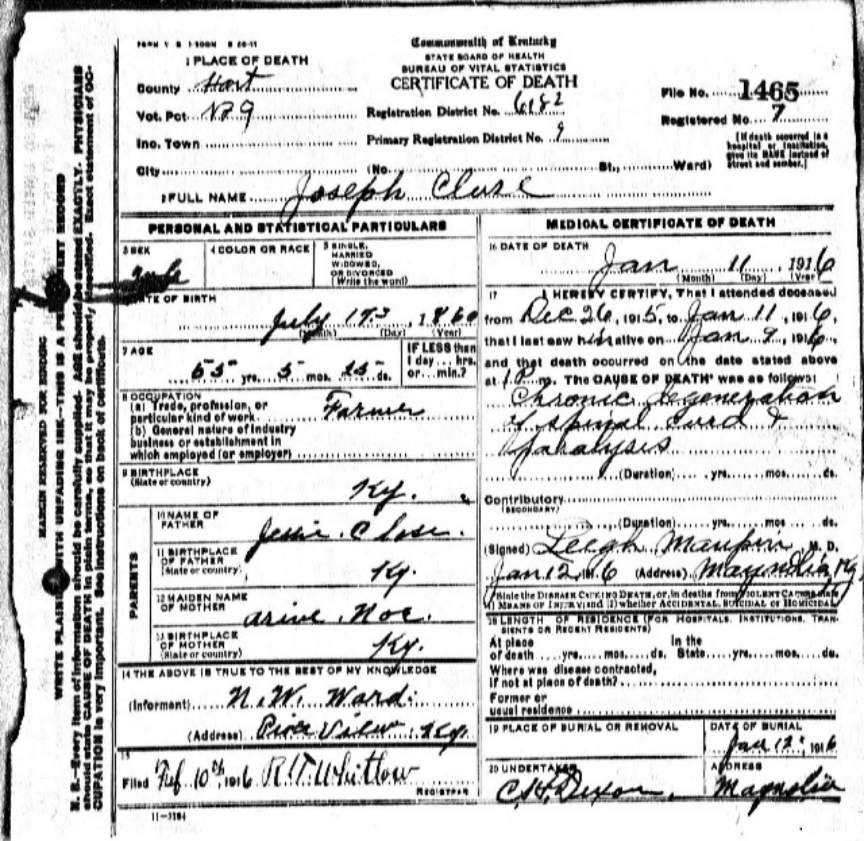 FORM V S 1-500M 8 26-11
Commonwealth of Kentucky
STATE BOARD OF HEALTH
BUREAU OF VITAL STATISTICS
CERTIFICATE OF DEATH
1 PLACE OF DEATH
County Hart
Vot. Pct. No 9
Ino. Town
City
Registration District No. 6182
Primary Registration District No. 9
(No. St., Ward)
File No. 1465
Registered No. 7
[If death occurred in a
hospital or institution,
give its NAME instead of
street and number.]
2 FULL NAME Joseph Close
PERSONAL AND STATISTICAL PARTICULARS
3 SEX
Male
4 COLOR OR RACE
5 SINGLE,
MARRIED
WIDOWED,
OR DIVORCED
(Write the word)
DATE OF BIRTH
July 17, 1860
(Month) (Day) (Year)
7 AGE
55 yrs. 5 mos. 25 ds.
IF LESS than
1 day... hrs.
or... min.?
8 OCCUPATION
(a) Trade, profession, or
particular kind of work Farmer
(b) General nature of industry
business or establishment in
which employed (or employer)
9 BIRTHPLACE
(State or country)
Ky.
PARENTS
10 NAME OF
FATHER
Jessie Close.
11 BIRTHPLACE
OF FATHER
(State or country)
Ky.
12 MAIDEN NAME
OF MOTHER
Noe.
13 BIRTHPLACE
OF MOTHER
(State or country)
Ky.
14 THE ABOVE IS TRUE TO THE BEST OF MY KNOWLEDGE
(Informant) N. W. Ward.
(Address) View Ky.
15
Filed Feb 10th, 1916 R.T. Whitlow
REGISTRAR
11-3184
MEDICAL CERTIFICATE OF DEATH
16 DATE OF DEATH
Jan 11, 1916
(Month) (Day) (Year)
17 I HEREBY CERTIFY, That I attended deceased
from Dec 26, 1915, to Jan 11, 1916,
that I last saw him alive on Jan 9, 1916,
and that death occurred on the date stated above
at 1 P. m. The CAUSE OF DEATH* was as follows:
Chronic degeneration
of spinal cord &
paralysis
(Duration) yrs. mos. ds.
Contributory
(SECONDARY)
(Duration) yrs. mos. ds.
(Signed) Leigh Maupin, M. D.
Jan 12, 1916 (Address) Magnolia Ky
*State the DISEASE CAUSING DEATH, or, in deaths from VIOLENT CAUSES, state
(1) MEANS OF INJURY; and (2) whether ACCIDENTAL, SUICIDAL or HOMICIDAL
18 LENGTH OF RESIDENCE (FOR HOSPITALS, INSTITUTIONS, TRAN-
SIENTS OR RECENT RESIDENTS)
At place In the
of death yrs. mos. ds. State yrs. mos. ds.
Where was disease contracted,
if not at place of death?
Former or
usual residence
19 PLACE OF BURIAL OR REMOVAL
DATE OF BURIAL
Jan 12, 1916
20 UNDERTAKER
C.H. Dixon,
ADDRESS
Magnolia
MARGIN RESERVED FOR BINDING
WRITE PLAINLY WITH UNFADING INK—THIS IS A PERMANENT RECORD
N. B.—Every item of information should be carefully supplied. AGE should be stated EXACTLY. PHYSICIANS
should state CAUSE OF DEATH in plain terms, so that it may be properly classified. Exact statement of OC-
CUPATION is very important. See instructions on back of certificate.